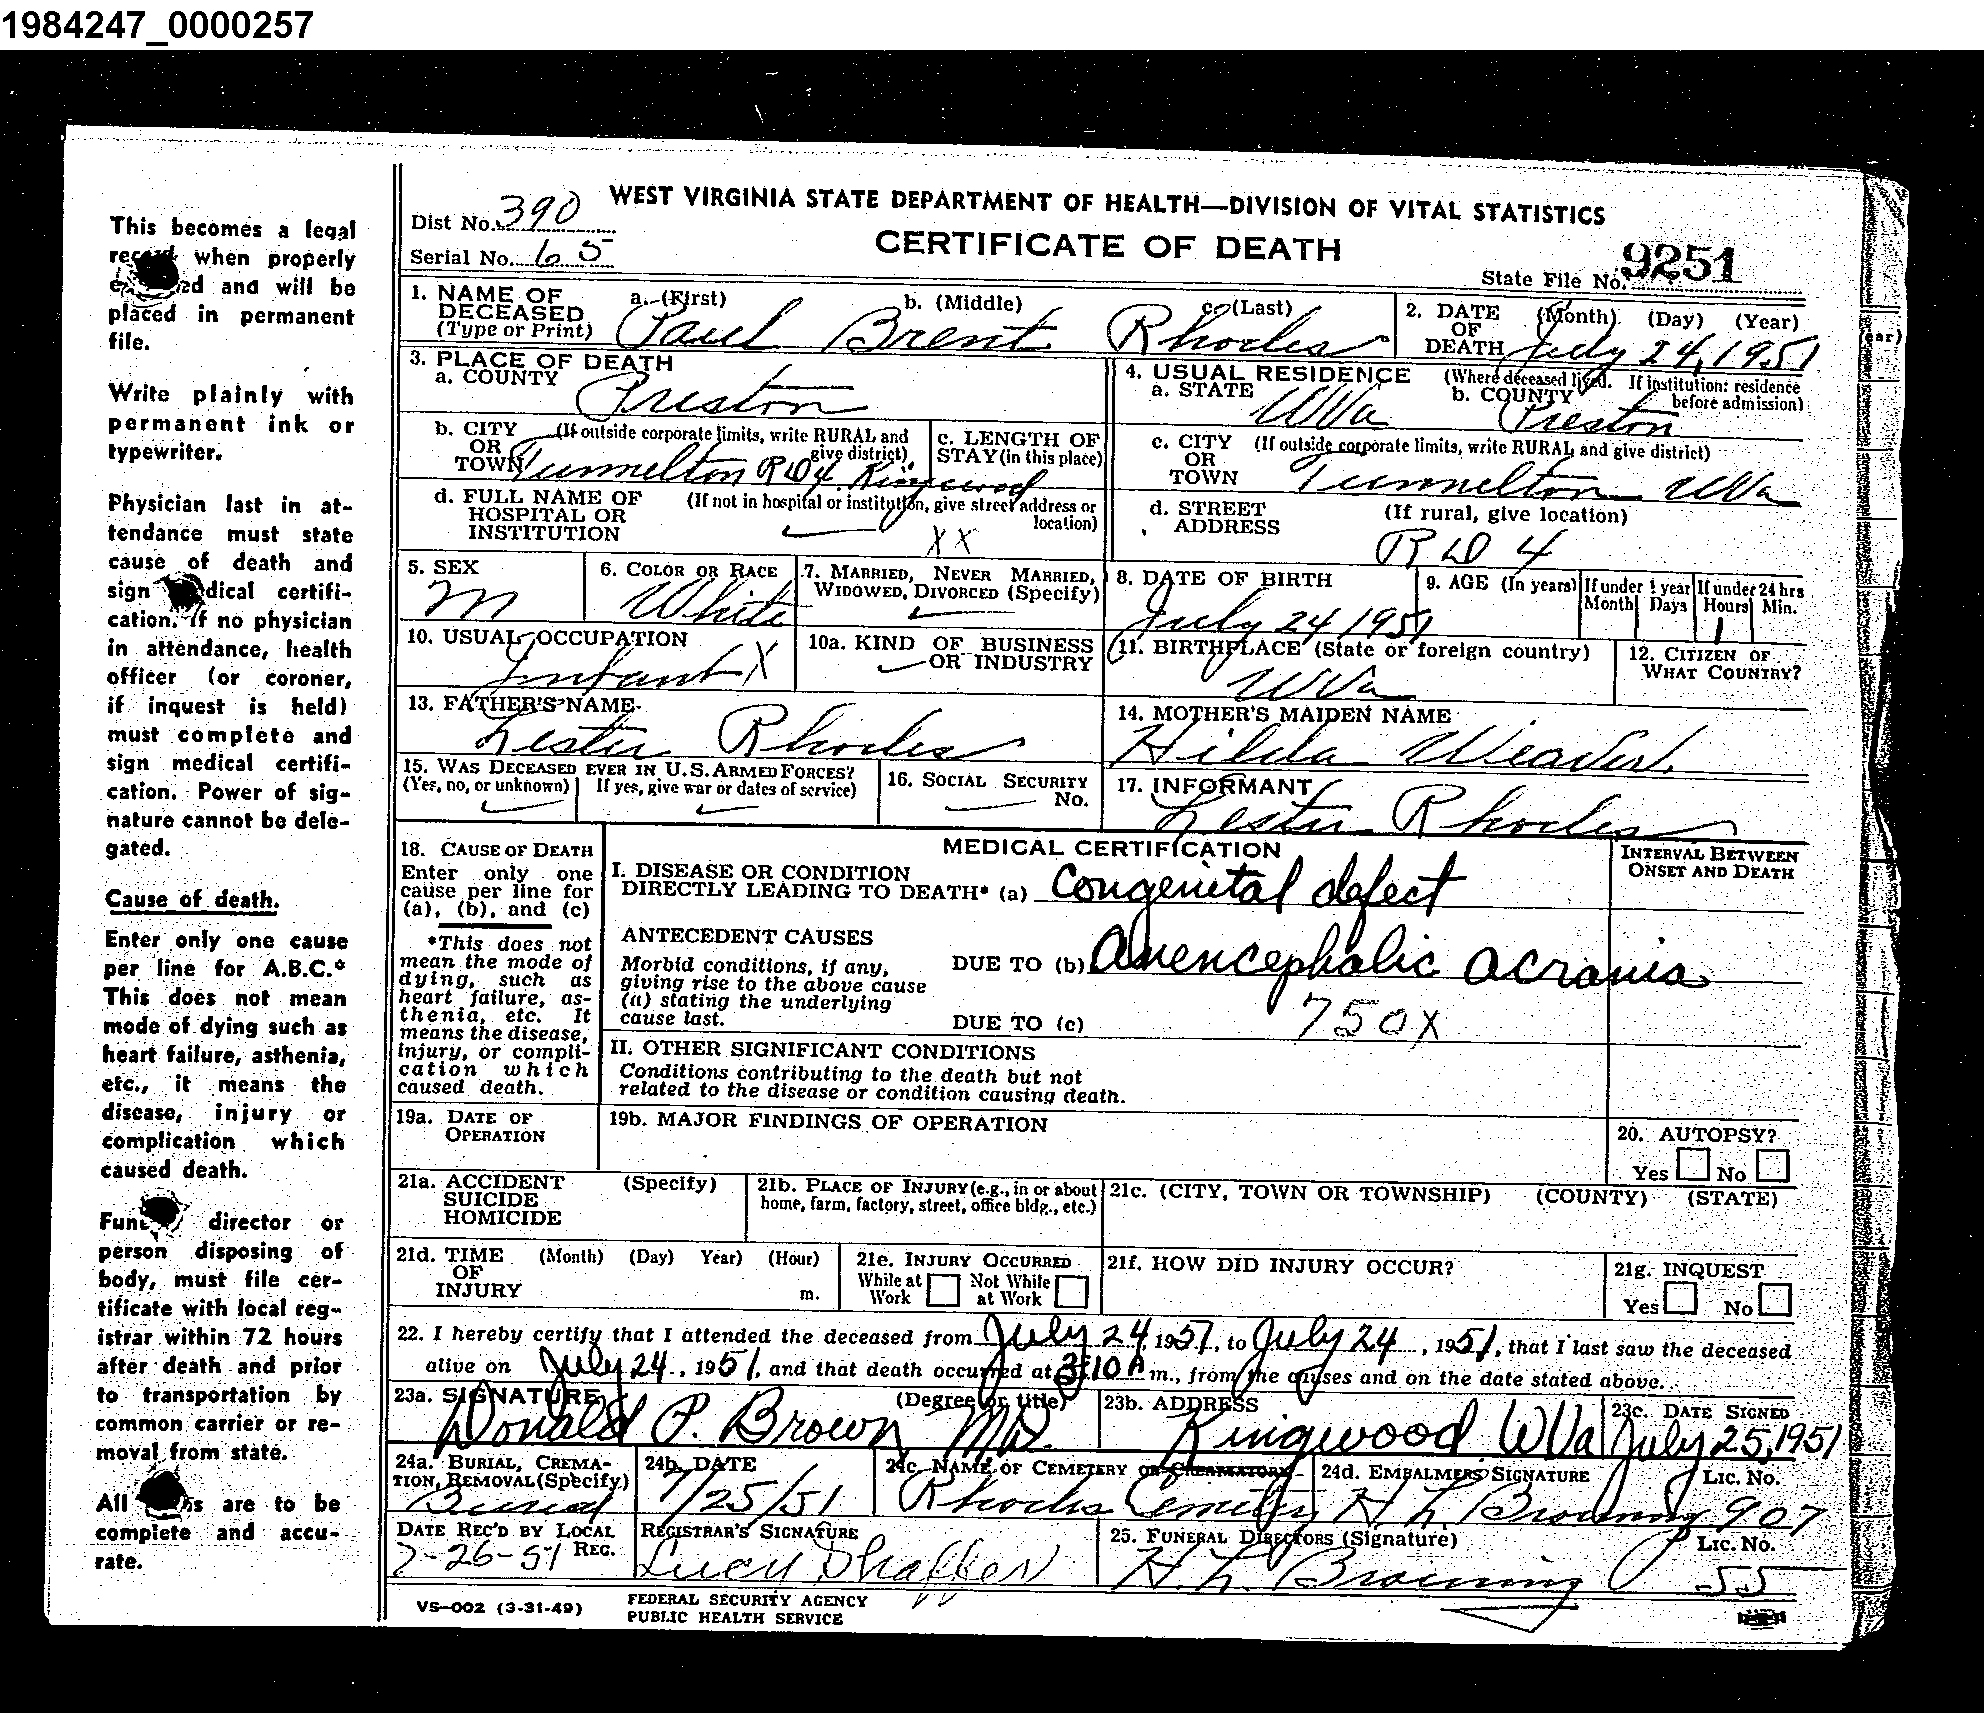 1984247_0000257
This becomes a legal
when properly
and will be
placed in permanent
file.
Write plainly with
permanent ink or
typewriter.
Physician last in at-
tendance must state
cause of death and
sign medical certifi-
cation. If no physician
in attendance, health
officer (or coroner,
if inquest is held)
must complete and
sign medical certifi-
cation. Power of sig-
nature cannot be dele-
gated.
Cause of death.
Enter only one cause
per line for A.B.C.*
This does not mean
mode of dying such as
heart failure, asthenia,
etc., it means the
disease, injury or
complication which
caused death.
director or
person disposing of
body, must file cer-
tificate with local reg-
istrar within 72 hours
after death and prior
to transportation by
common carrier or re-
moval from state.
All are to be
complete and accu-
rate.
WEST VIRGINIA STATE DEPARTMENT OF HEALTH—DIVISION OF VITAL STATISTICS
Dist No. 390
CERTIFICATE OF DEATH
Serial No. 65
State File No. 9251
1. NAME OF DECEASED (Type or Print) a. (First) b. (Middle) c. (Last)
Paul Brent Rhodes
2. DATE OF DEATH (Month) (Day) (Year)
July 24, 1951
3. PLACE OF DEATH
a. COUNTY Preston
4. USUAL RESIDENCE (Where deceased lived. If institution: residence before admission)
a. STATE WVa b. COUNTY Preston
b. CITY OR TOWN (If outside corporate limits, write RURAL and give district)
Tunnelton RD4 Kingwood
c. LENGTH OF STAY (in this place)
c. CITY OR TOWN (If outside corporate limits, write RURAL and give district)
Tunnelton WVa
d. FULL NAME OF HOSPITAL OR INSTITUTION (If not in hospital or institution, give street address or location)
XX
d. STREET ADDRESS (If rural, give location)
RD 4
5. SEX M
6. COLOR OR RACE White
7. MARRIED, NEVER MARRIED, WIDOWED, DIVORCED (Specify)
8. DATE OF BIRTH July 24 1951
9. AGE (In years) If under 1 year Month Days If under 24 hrs Hours Min.
1
10. USUAL OCCUPATION Infant X
10a. KIND OF BUSINESS OR INDUSTRY
11. BIRTHPLACE (State or foreign country) WVa
12. CITIZEN OF WHAT COUNTRY?
13. FATHER'S NAME Lester Rhodes
14. MOTHER'S MAIDEN NAME Hilda
15. WAS DECEASED EVER IN U.S. ARMED FORCES? (Yes, no, or unknown) If yes, give war or dates of service)
16. SOCIAL SECURITY No.
17. INFORMANT Lester Rhodes
MEDICAL CERTIFICATION
INTERVAL BETWEEN ONSET AND DEATH
18. CAUSE OF DEATH
Enter only one
cause per line for
(a), (b), and (c)
*This does not
mean the mode of
dying, such as
heart failure, as-
thenia, etc. It
means the disease,
injury, or compli-
cation which
caused death.
I. DISEASE OR CONDITION
DIRECTLY LEADING TO DEATH* (a) Congenital defect
ANTECEDENT CAUSES
Morbid conditions, if any,
giving rise to the above cause
(a) stating the underlying
cause last.
DUE TO (b) Anencephalic acrania
DUE TO (c) 750X
II. OTHER SIGNIFICANT CONDITIONS
Conditions contributing to the death but not
related to the disease or condition causing death.
19a. DATE OF OPERATION
19b. MAJOR FINDINGS OF OPERATION
20. AUTOPSY?
Yes No
21a. ACCIDENT SUICIDE HOMICIDE (Specify)
21b. PLACE OF INJURY (e.g., in or about home, farm, factory, street, office bldg., etc.)
21c. (CITY, TOWN OR TOWNSHIP) (COUNTY) (STATE)
21d. TIME OF INJURY (Month) (Day) Year) (Hour) m.
21e. INJURY OCCURRED
While at Work Not While at Work
21f. HOW DID INJURY OCCUR?
21g. INQUEST
Yes No
22. I hereby certify that I attended the deceased from July 24, 1951, to July 24, 1951, that I last saw the deceased
alive on July 24, 1951, and that death occurred at 3:10 A m., from the causes and on the date stated above.
23a. SIGNATURE (Degree or title)
Donald P. Brown MD.
23b. ADDRESS Kingwood WVa
23c. DATE SIGNED July 25, 1951
24a. BURIAL, CREMATION, REMOVAL (Specify) Burial
24b. DATE 7/25/51
24c. NAME OF CEMETERY OR CREMATORY Rhodes Cemetery
24d. EMBALMERS SIGNATURE LIC. NO.
H. L. Browning 907
DATE REC'D BY LOCAL REG. 7-26-51
REGISTRAR'S SIGNATURE Lucy Shaffer
25. FUNERAL DIRECTORS (Signature) LIC. NO.
H. L. Browning 55
VS-002 (3-31-49)
FEDERAL SECURITY AGENCY
PUBLIC HEALTH SERVICE